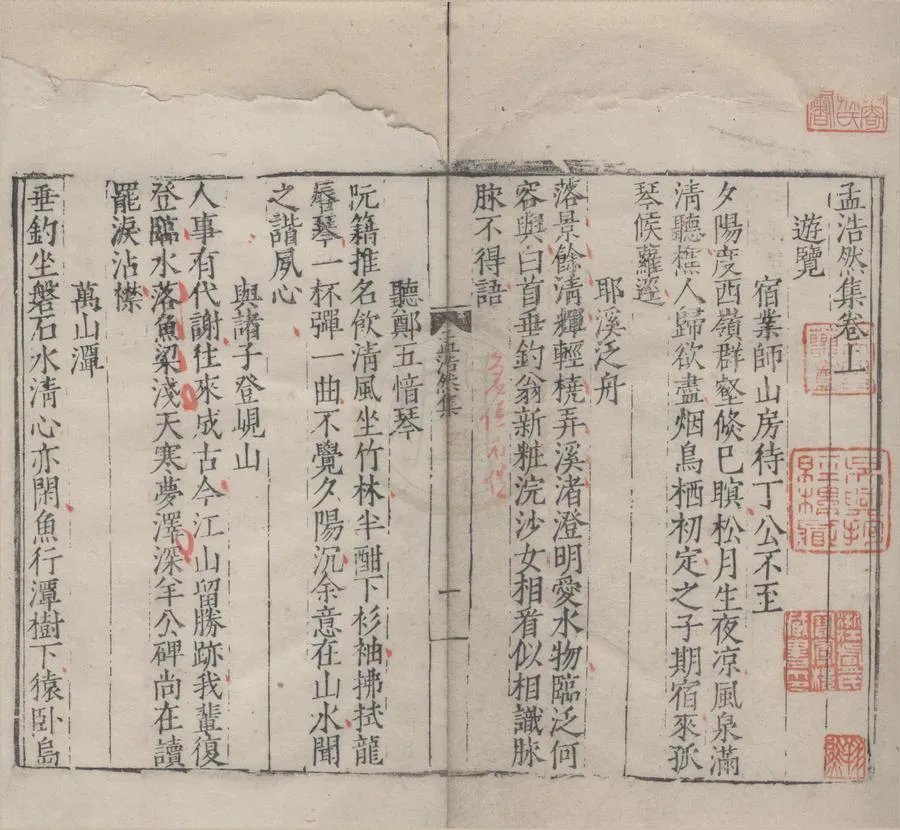 孟浩然集卷上
遊覽
宿業師山房待丁公不至
夕陽度西嶺群壑倐已暝松月生夜凉風泉滿
清聽樵人歸欲盡烟鳥栖初定之子期宿來孤
琴候蘿逕
耶溪泛舟
落景餘清輝輕橈弄溪渚澄明愛水物臨泛何
容與白首垂釣翁新粧浣沙女相看似相識脉
脉不得語
孟浩然集
一
聽鄭五愔琴
阮籍推名飲清風坐竹林半酣下衫袖拂拭龍
唇琴一杯彈一曲不覺夕陽沉余意在山水聞
之諧夙心
與諸子登峴山
人事有代謝往來成古今江山留勝跡我輩復
登臨水落魚梁淺天寒夢澤深羊公碑尚在讀
罷淚沾襟
萬山潭
垂釣坐磐石水清心亦閑魚行潭樹下猿卧島